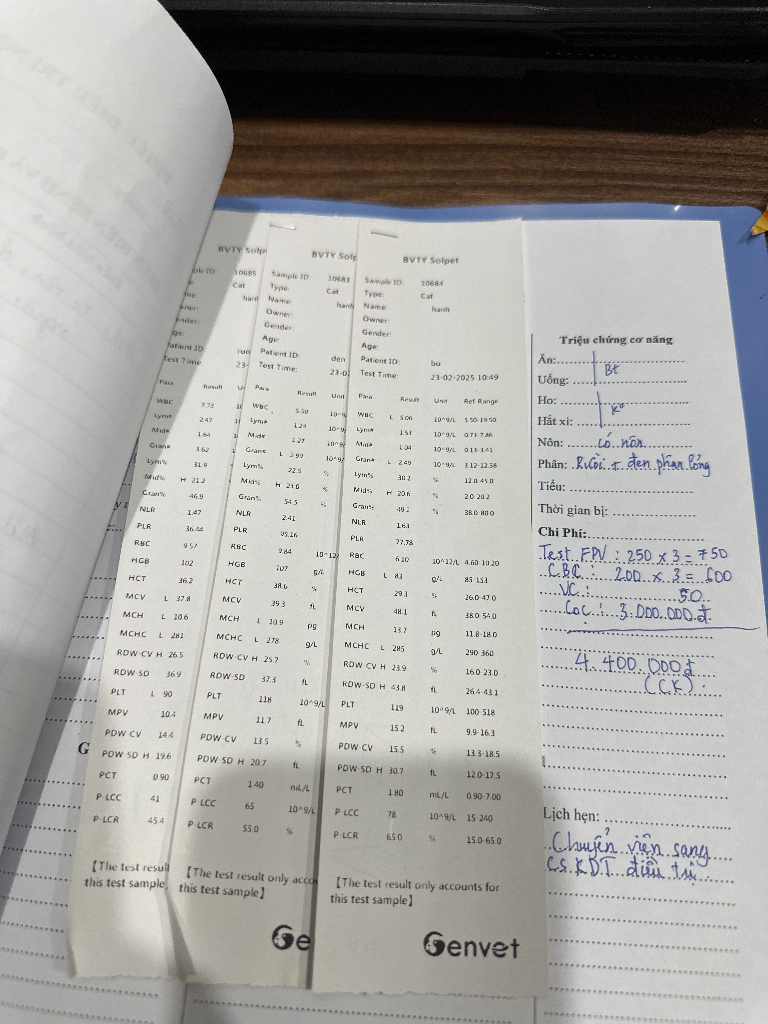 BVTY Solp
ple ID: 10685
Cat
hanh
wner:
ender:
ge:
atient ID: ruo
Test Time: 23-
Para Result U
WBC 7.73
Lym# 2.47
Mid# 1.64
Gran# 3.62
Lym% 31.9
Mid% H 21.2
Gran% 46.9
NLR 1.47
PLR 36.44
RBC 9.57
HGB 102
HCT 36.2
MCV L 37.8
MCH L 10.6
MCHC L 281
RDW-CV H 26.5
RDW-SD 36.9
PLT L 90
MPV 10.4
PDW-CV 14.4
PDW-SD H 19.6
PCT 0.90
P-LCC 41
P-LCR 45.4
【The test result
this test sample
BVTY Solp
Sample ID: 10683
Type: Cat
Name: hanh
Owner:
Gender:
Age:
Patient ID: den
Test Time: 23-0
Para Result Unit
WBC 5.50 10^9
Lym# 1.24 10^9
Mid# 1.27 10^9
Gran# L 2.99 10^9/
Lym% 22.5 %
Mid% H 23.0 %
Gran% 54.5 %
NLR 2.41
PLR 95.16
RBC 9.84 10^12/
HGB 107 g/L
HCT 38.6 %
MCV 39.3 fL
MCH L 10.9 pg
MCHC L 278 g/L
RDW-CV H 25.7 %
RDW-SD 37.3 fL
PLT 118 10^9/L
MPV 11.7 fL
PDW-CV 13.5 %
PDW-SD H 20.7 fL
PCT 1.40 mL/L
P-LCC 65 10^9/L
P-LCR 55.0 %
【The test result only acco
this test sample】
Ge
BVTY Solpet
Sample ID: 10684
Type: Cat
Name: hanh
Owner:
Gender:
Age:
Patient ID: bo
Test Time: 23-02-2025 10:49
Para Result Unit Ref Range
WBC L 5.06 10^9/L 5.50-19.50
Lym# 1.53 10^9/L 0.73-7.86
Mid# 1.04 10^9/L 0.13-3.41
Gran# L 2.49 10^9/L 3.12-12.58
Lym% 30.2 % 12.0-45.0
Mid% H 20.6 % 2.0-20.2
Gran% 49.2 % 38.0-80.0
NLR 1.63
PLR 77.78
RBC 6.10 10^12/L 4.60-10.20
HGB L 83 g/L 85-153
HCT 29.3 % 26.0-47.0
MCV 48.1 fL 38.0-54.0
MCH 13.7 pg 11.8-18.0
MCHC L 285 g/L 290-360
RDW-CV H 23.9 % 16.0-23.0
RDW-SD H 43.8 fL 26.4-43.1
PLT 119 10^9/L 100-518
MPV 15.2 fL 9.9-16.3
PDW-CV 15.5 % 13.3-18.5
PDW-SD H 30.7 fL 12.0-17.5
PCT 1.80 mL/L 0.90-7.00
P-LCC 78 10^9/L 15-240
P-LCR 65.0 % 15.0-65.0
【The test result only accounts for
this test sample】
Genvet
Triệu chứng cơ năng
Ăn: Bt
Uống:
Ho: Ko
Hắt xì:
Nôn: có nôn
Phân: Ruồi + đen phân lỏng
Tiểu:
Thời gian bị:
Chi Phí:
Test FPV: 250 x 3 = 750
CBC: 200 x 3 = 600
VC: 50
Cọc: 3.000.000.đ
4.400.000đ
(CK)
Lịch hẹn:
Chuyển viện sang
CS KDT điều trị
G